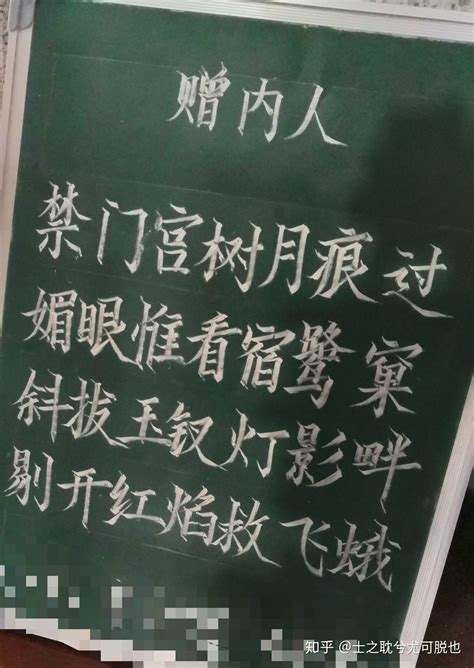 赠内人
禁门宫树月痕过
媚眼惟看宿鹭窠
斜拔王钗灯影畔
剔开红焰救飞蛾
知乎 @士之耽兮尤可脱也